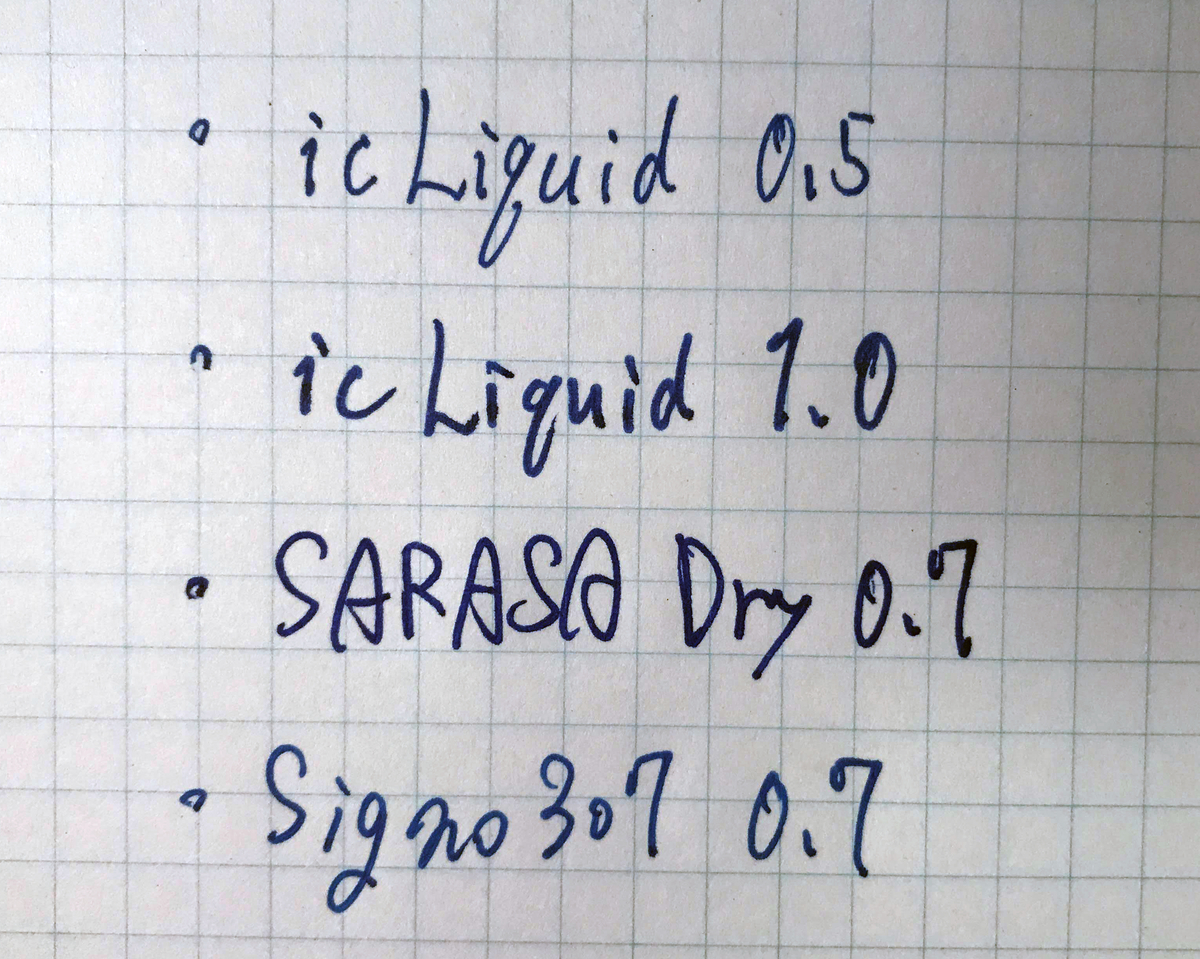 • ic Liquid 0.5
• ic Liquid 1.0
• SARASA Dry 0.7
• Signo 307 0.7